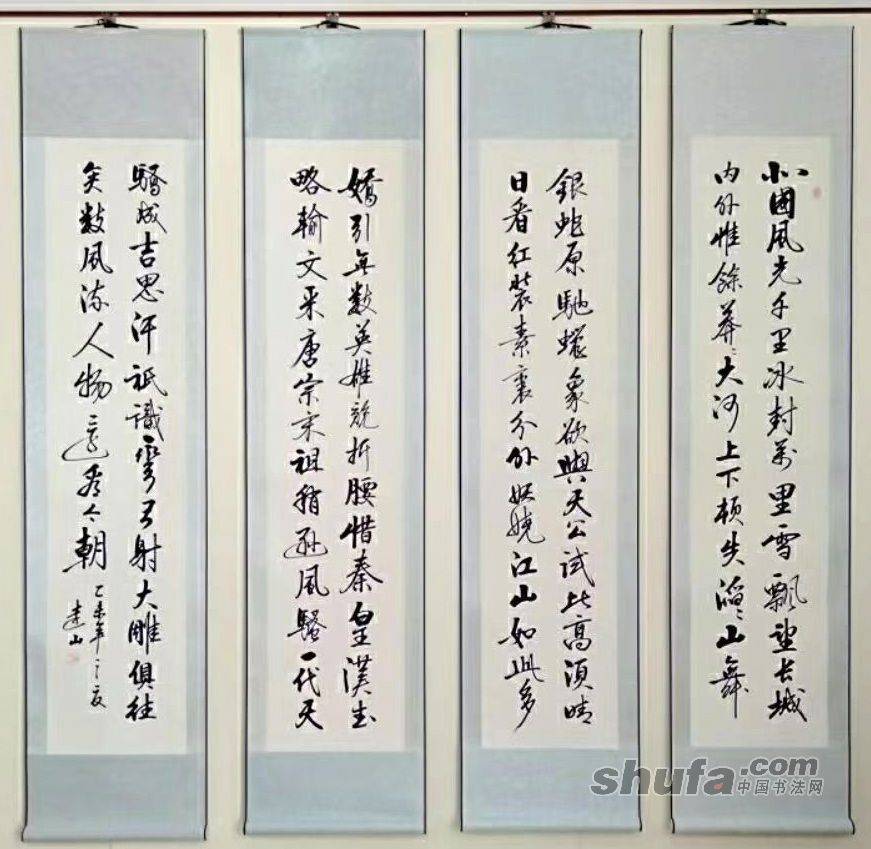 北國風光千里冰封萬里雪飄望长城
内外惟餘莽々大河上下頓失滔々山舞
銀蛇原馳蠟象欲與天公試比高須晴
日看紅裝素裹分外妖嬈江山如此多
嬌引無數英雄競折腰惜秦皇漢武
略輸文采唐宗宋祖稍遜風騷一代天
驕成吉思汗祇識彎弓射大雕俱往
矣數風流人物還看今朝
乙未年之夏
shufa.com
中国书法网